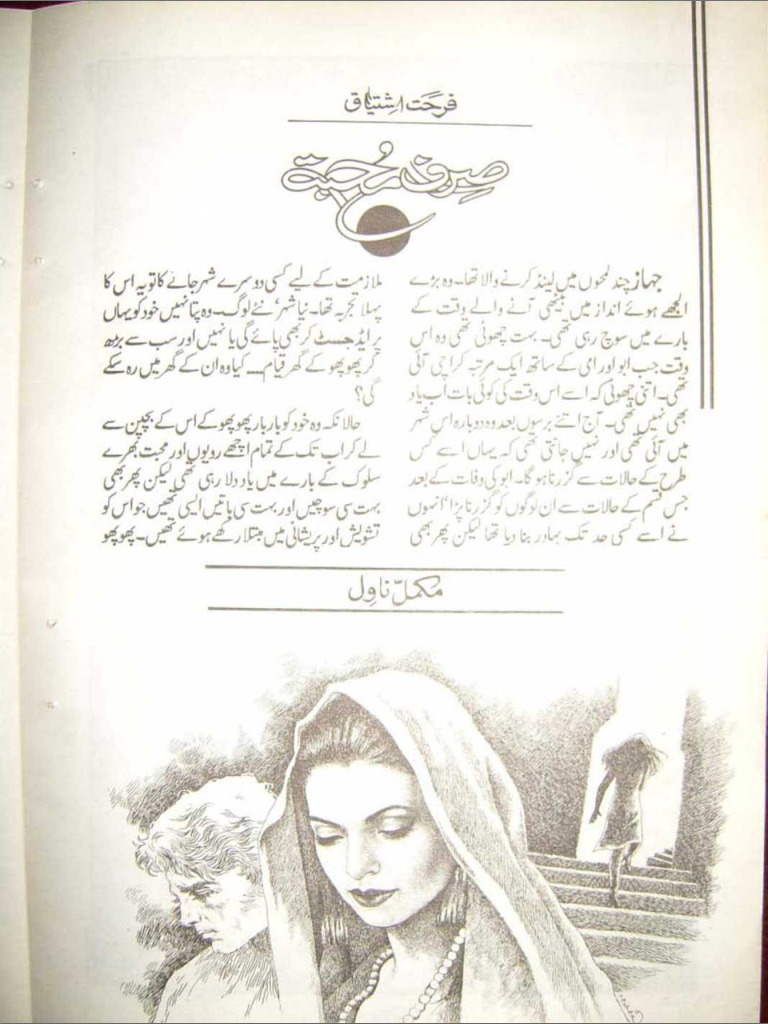 فرحت اشتیاق
صرف محبت
جہاز چند لمحوں میں لینڈ کرنے والا تھا۔ وہ بڑے
الجھے ہوئے انداز میں بیٹھی آنے والے وقت کے
بارے میں سوچ رہی تھی۔ بہت چھوٹی تھی وہ اس
وقت جب ابو اور امی کے ساتھ ایک مرتبہ کراچی آئی
تھی۔ اتنی چھوٹی کہ اسے اس وقت کی کوئی بات اب یاد
بھی نہیں تھی۔ آج اتنے برسوں بعد وہ دوبارہ اس شہر
میں آئی تھی اور نہیں جانتی تھی کہ یہاں اسے کس
طرح کے حالات سے گزرنا ہوگا۔ ابو کی وفات کے بعد
جس قسم کے حالات سے ان لوگوں کو گزرنا پڑا' انہوں
نے اسے کسی حد تک بہادر بنا دیا تھا لیکن پھر بھی
ملازمت کے لیے کسی دوسرے شہر جانے کا تو یہ اس کا
پہلا تجربہ تھا۔ نیا شہر' نئے لوگ۔ وہ پتا نہیں خود کو یہاں
پر ایڈجسٹ کر بھی پائے گی یا نہیں اور سب سے بڑھ
کر پھوپھو کے گھر قیام.... کیا وہ ان کے گھر میں رہ سکے
گی؟
حالانکہ وہ خود کو بار بار پھوپھو کے اس کے بچپن سے
لے کر اب تک کے تمام اچھے رویوں اور محبت بھرے
سلوک کے بارے میں یاد دلا رہی تھی لیکن پھر بھی
بہت سی سوچیں اور بہت سی باتیں ایسی تھیں جو اس کو
تشویش اور پریشانی میں مبتلا رکھے ہوئے تھیں۔ پھوپھو
مکمل ناول